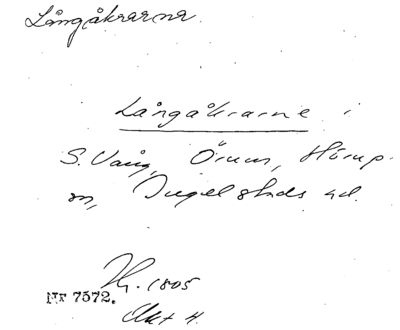 Långåkrarna
Långåkrarne i
S. Vång, Örum, Hörups-
sn, Ingelstads hd.
Nr 7572.
Akt 4.